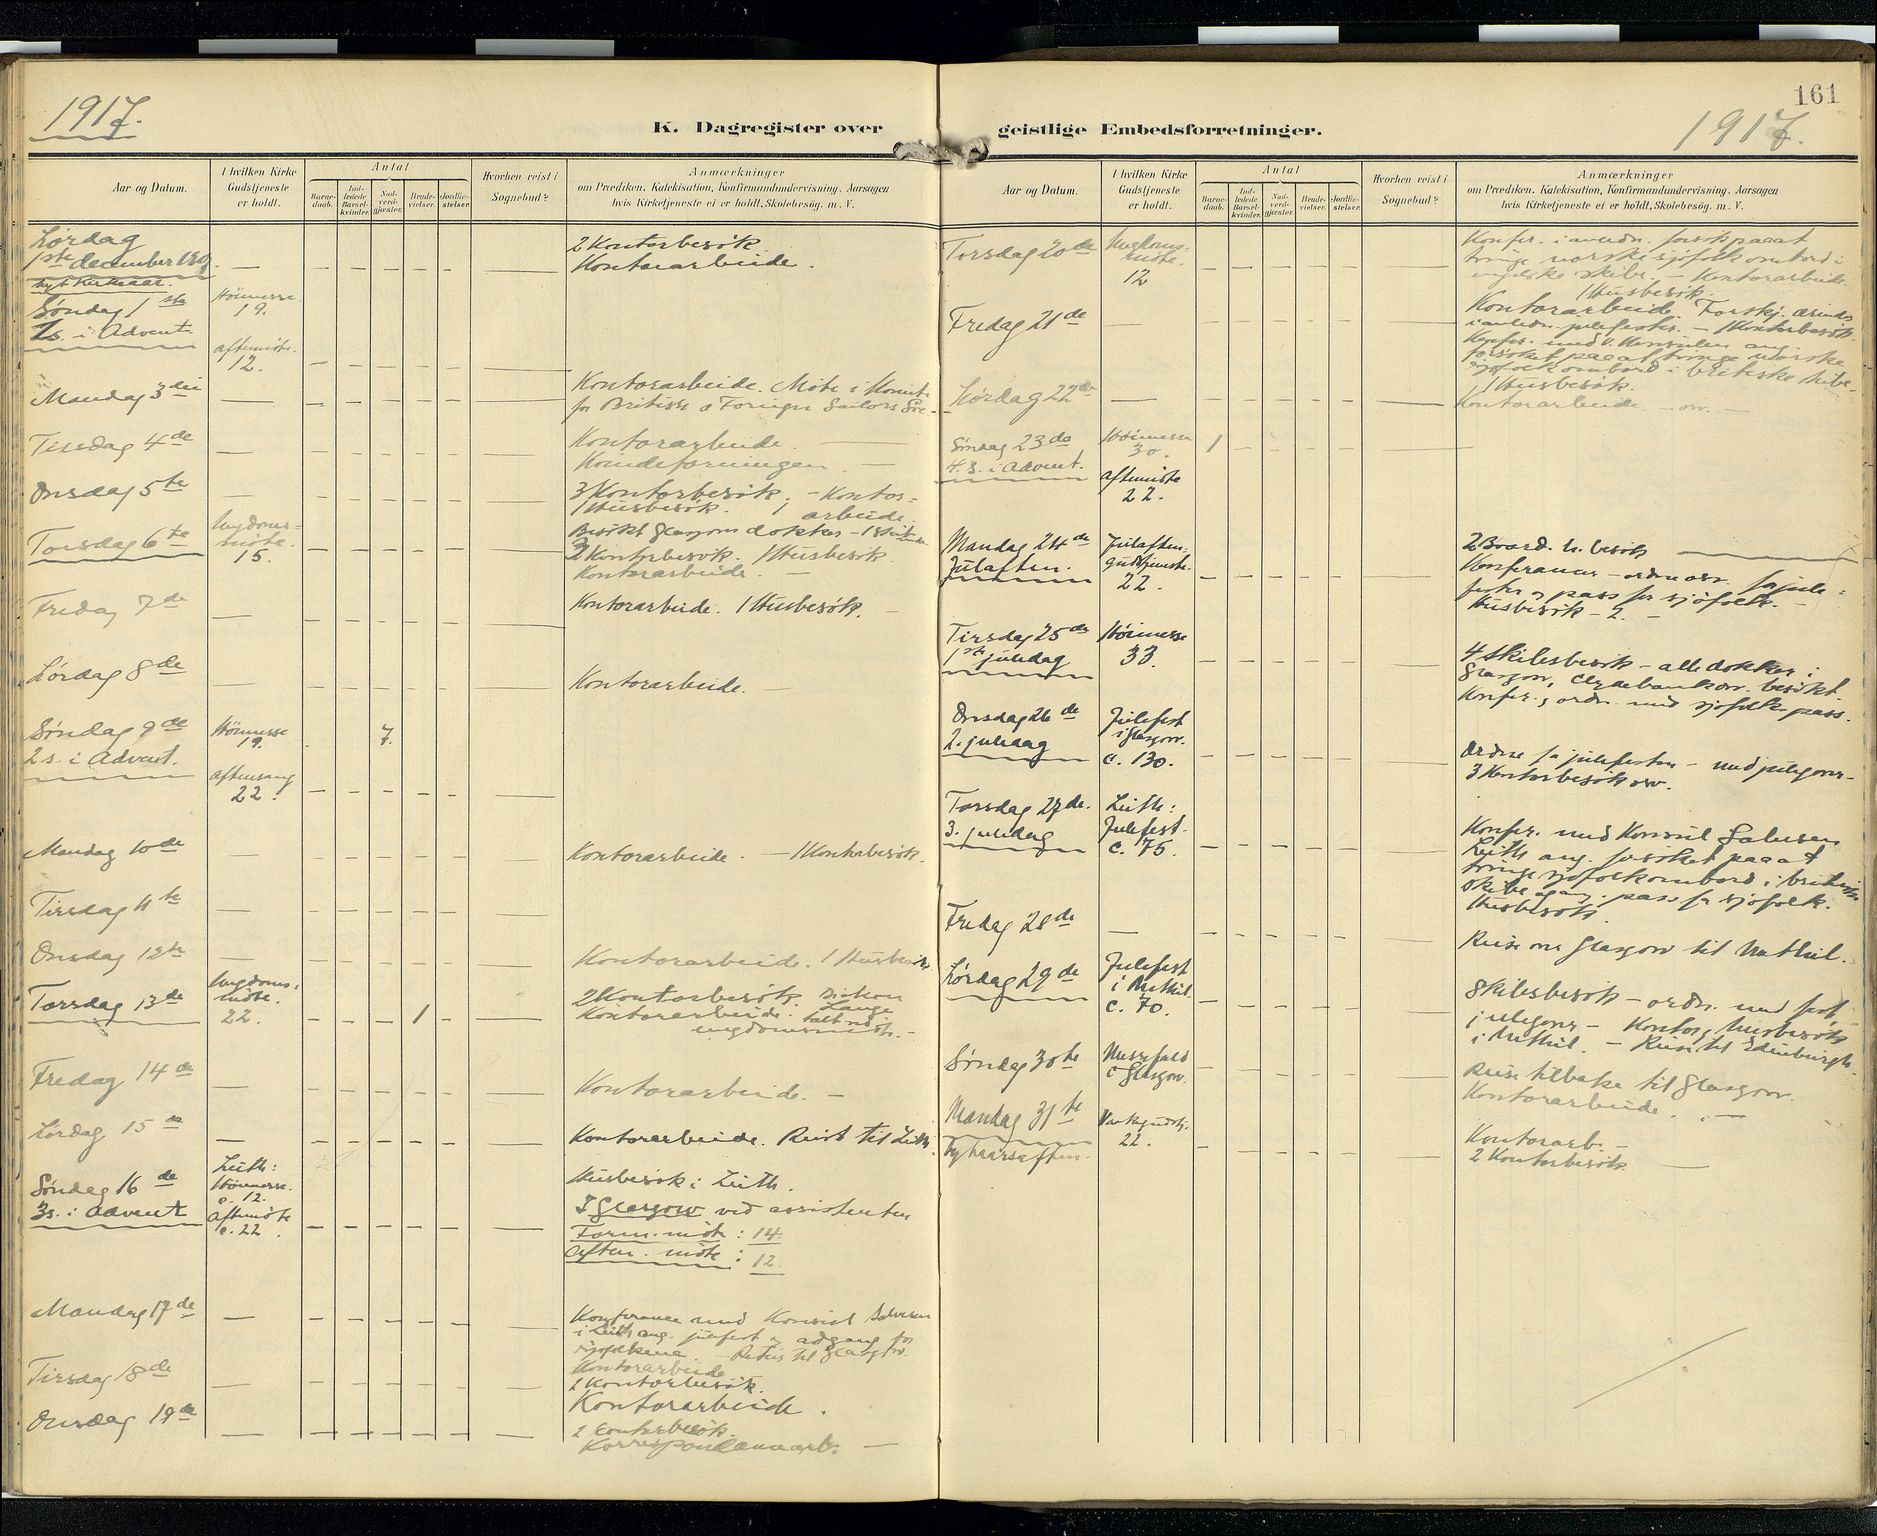 1917.
K. Dagregister over
Aar og Datum.
I hvilken Kirke Gudstjeneste er holdt.
Antal
Barnedaab.
Indledede Barselkvinder.
Nadverdgjæster.
Brudevielser.
Jordfæstelser.
Hvorhen reist i Sognebud?
Anmærkninger
om Prædiken, Katekisation, Konfirmandundervisning, Aarsagen
hvis Kirketjeneste ei er holdt, Skolebesög. m. V.
Lørdag
1ste december
2 Kontorbesök.
Kontorarbeide.
nyt Kirkeaar.
Søndag
1s. i Advent.
Höimesse
19.
aftenmöte.
12.
Mandag 3die
Kontorarbeide. Möte i Komite
for British & Foreign Sailors Soc.
Tirsdag 4de
Kontorarbeide
Kvindeforeningen.
Onsdag 5te
3 Kontorbesök. – Kontor-
1 Husbesök. arbeide.
Torsdag 6te
Ungdoms-
möte.
15.
Besökt Glasgows dokker –
2 Kontorbesök. 1 Husbesök.
Kontorarbeide.
Fredag 7de
Kontorarbeide. 1 Husbesök.
Lørdag 8de
Kontorarbeide. –
Søndag 9de
2 s. i Advent.
Höimesse
19.
7.
aftensang
22.
Mandag 10de
Kontorarbeide. – 1 Kontorbesök.
Tirsdag 11te
Onsdag 12te
Kontorarbeide. 1 Husbesök.
Torsdag 13de
Ungdoms-
möte.
22.
1
2 Kontorbesök. Diakon
Kontorarbeide. Lange
talt ved
ungdomsmöte. –
Fredag 14de
Kontorarbeide. –
Lørdag 15de
Kontorarbeide. Reist til Leith.
Søndag 16de
3s. i Advent
Leith:
Höimesse.
c. 12.
Aftenmöte
c. 22.
Husbesök i Leith.
I Glasgow ved assistenten
Form. möte: 14.
Aften. möte: 12
Mandag 17de
Konferance med Konsul Salvesen
i Leith ang. julefest og adgang for
sjøfolkene – Retur til Glasgow.
Tirsdag 18de
Kontorarbeide
1 Kontorbesök.
Onsdag 19de
Kontorarbeide.
2 Kontorbesök.
Korrespondancearb. –
161
1917.
geistlige Embedsforretninger.
Aar og Datum.
I hvilken Kirke Gudstjeneste er holdt.
Antal
Barnedaab.
Indledede Barselkvinder.
Nadverdgjæster.
Brudevielser.
Jordfæstelser.
Hvorhen reist i Sognebud?
Anmærkninger
om Prædiken, Katekisation, Konfirmandundervisning, Aarsagen
hvis Kirketjeneste ei er holdt, Skolebesög. m. V.
Torsdag 20de
Ungdoms-
möte.
12
Konfer. i anledn. forsök paaat
tvinge norske sjøfolk ombord i
engelske skibe. – Kontorarbeide.
1 Husbesök.
Fredag 21de
Kontorarbeide. Forskj. ærinder
i anledn. julefester. – 1 Kontorbesök.
Konfer. med v. Konsulen ang.
forsöket paaat tvinge norske
sjøfolk ombord i britiske skibe –
1 Husbesök.
Lørdag 22de
Kontorarbeide – osv. –
Søndag 23de
4. s. i Advent.
Höimesse
30.
1
aftenmöte
22.
Mandag 24de
Julaften.
Julaften:
gudstjeneste.
22.
2 Board. h. besök
Konferancer – ordne osv. for jule-
fester og pass for sjøfolk. –
Husbesök – 2. –
Tirsdag 25de
1ste juledag
Höimesse
33.
4 skibsbesök – alle dokker i
Glasgow, Clydebank osv. besökt.
Konfer., ordn. med sjøfolks pass.
Onsdag 26de
2. juledag
Julefest
i Glasgow.
c. 130.
Ordne for julefesten – med julegaver –
3 Kontorbesök osv.
Torsdag 27de.
3. juledag
Leith:
Julefest.
c. 75.
Konfer. med Konsul Salvesen
Leith ang. forsöket paaat
tvinge sjøfolk ombord i britiske
skibe og ang. pass for sjøfolk.
Husbesök.
Fredag 28de
Reise over Glasgow til Methil.
Lørdag 29de
Julefest
i Methil.
c. 70.
Skibsbesök – ordn. med fest,
julegaver – Kontor og husbesök
i Methil. – Reise til Edinburgh.
Søndag 30te
Messefald
i Glasgow.
Reise tilbake til Glasgow.
Kontorarbeide. –
Mandag 31te
Nytaarsaften.
22.
Kontorarb. –
2 Kontorbesök